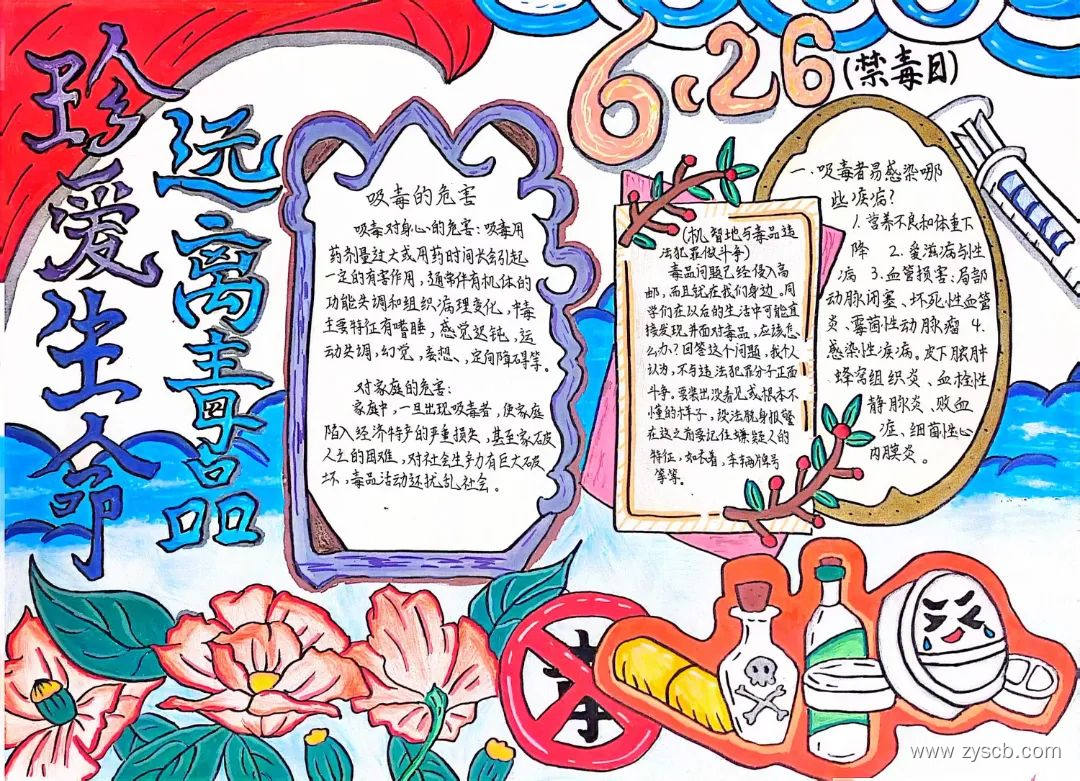 珍爱生命
远离毒品
6.26
(禁毒日)
吸毒的危害
吸毒对身心的危害:吸毒用
药剂量过大或用药时间长会引起
一定的有害作用，通常伴有机体的
功能失调和组织病理变化，中毒
主要特征有嗜睡，感觉迟钝，运
动失调，幻觉，妄想、，定向障碍等。
对家庭的危害:
家庭中，一旦出现吸毒者，使家庭
陷入经济特产的严重损失，甚至家破
人亡的困难，对社会生产力有巨大破
坏，毒品活动还扰乱社会。
(机智地与毒品违
法犯罪做斗争)
毒品问题已经侵入高
邮，而且就在我们身边。同
学们在以后的生活中可能直
接发现并面对毒品，应该怎
么办?回答这个问题，我个人
认为，不与违法犯罪分子正面
斗争。要装出没看见或根本不
懂的样子，设法脱身报警
在这之前要记住嫌疑人的
特征，如衣着，车辆牌号
等等。
一.吸毒者易感染哪
些疾病?
1.营养不良和体重下
降 2.爱滋病与性
病 3.血管损害:局部
动脉闭塞、坏死性血管
炎、霉菌性动脉瘤 4.
感染性疾病。皮下脓肿
蜂窝组织炎、血栓性
静脉炎、败血
症、细菌性心
内膜炎。
毒
www.zyscb.com